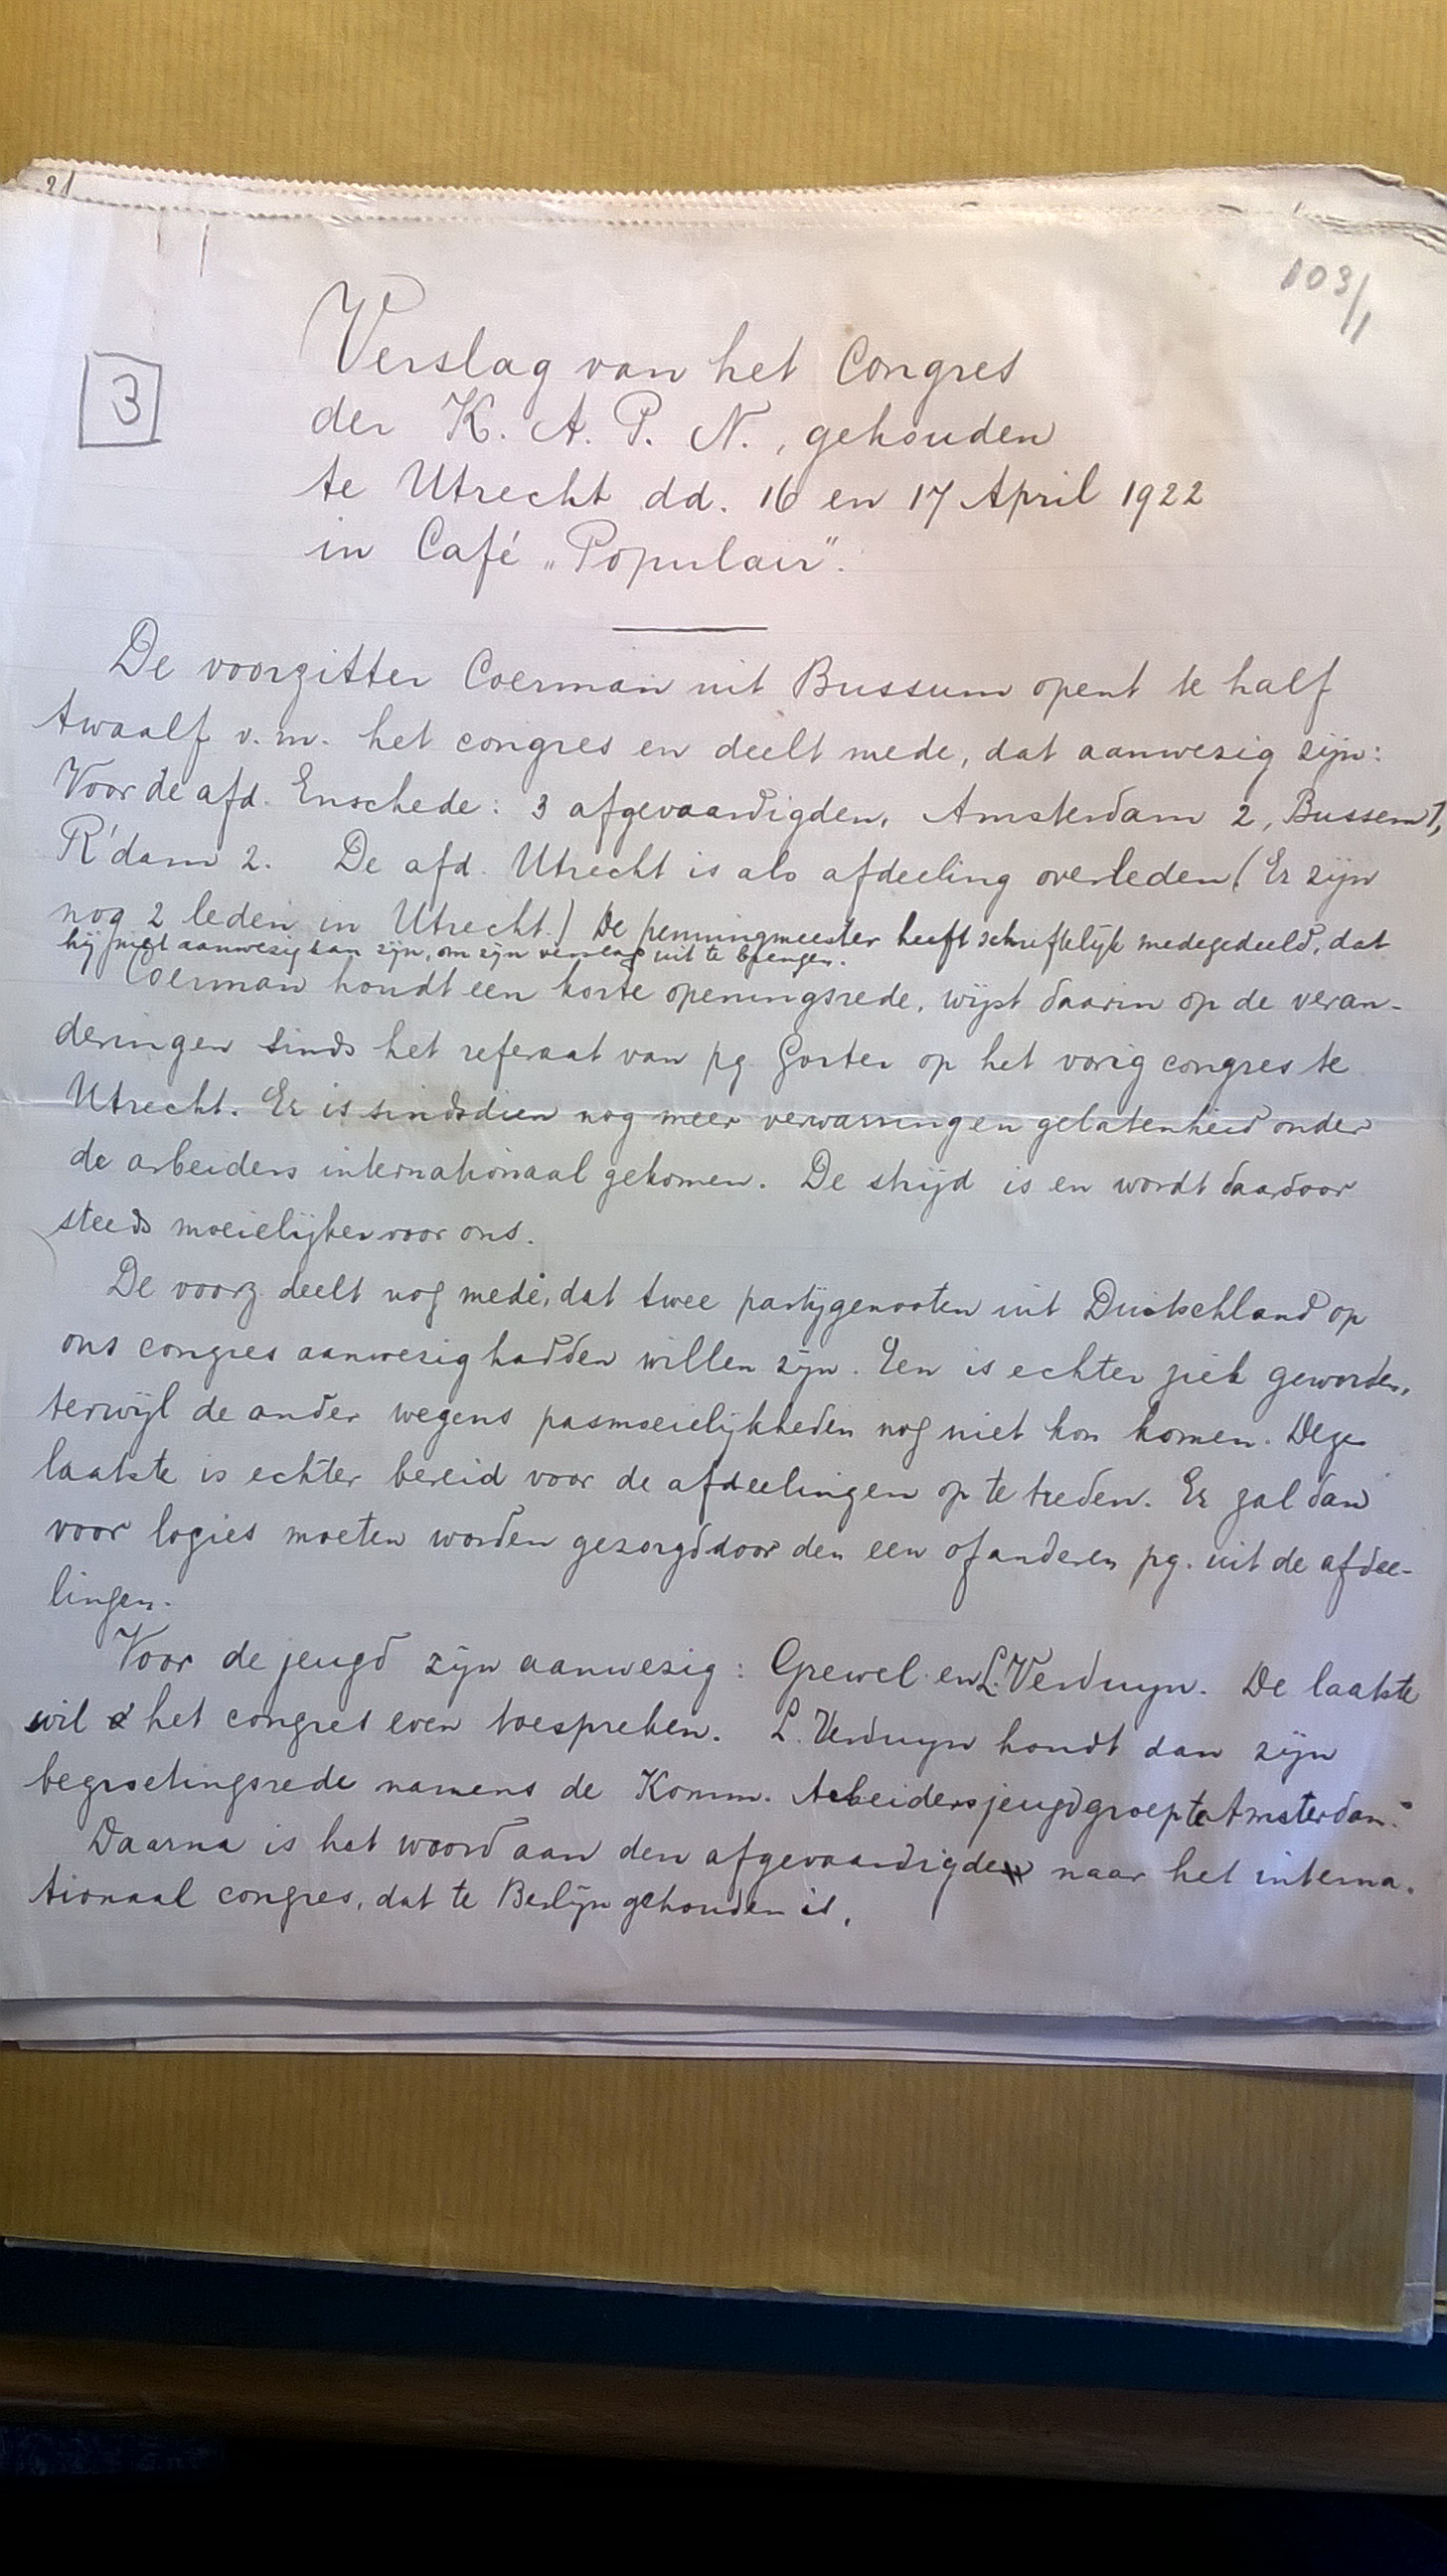 21
103/1
3
Verslag van het Congres
der K. A. P. N., gehouden
te Utrecht dd. 16 en 17 April 1922
in Café „Populair".
De voorzitter Coerman uit Bussum opent te half
twaalf v.m. het congres en deelt mede, dat aanwezig zijn:
Voor de afd. Enschede: 3 afgevaardigden, Amsterdam 2, Bussem 1,
R'dam 2. De afd. Utrecht is als afdeeling overleden (Er zijn
nog 2 leden in Utrecht.) De penningmeester heeft schriftelijk medegedeeld, dat
hij niet aanwezig kan zijn, om zijn verslag uit te brengen.
Coerman houdt een korte openingsrede, wijst daarin op de veran-
deringen sinds het referaat van pg. Gorter op het vorig congres te
Utrecht. Er is sindsdien nog meer verwarring en gelatenheid onder
de arbeiders internationaal gekomen. De strijd is en wordt daardoor
steeds moeielijker voor ons.
De voorz deelt nog mede, dat twee partijgenooten uit Duitschland op
ons congres aanwezig hadden willen zijn. Een is echter ziek geworden,
terwijl de ander wegens pasmoeielijkheden nog niet kon komen. Deze
laatste is echter bereid voor de afdeelingen op te treden. Er zal dan
voor logies moeten worden gezorgd door den een of anderen pg. uit de afdee-
lingen.
Voor de jeugd zijn aanwezig: Grewel en L. Verduyn. De laatste
wil het congres even toespreken. L. Verduyn houdt dan zijn
begroetingsrede namens de Komm. Arbeidersjeugdgroep te Amsterdam.
Daarna is het woord aan den afgevaardigde naar het interna-
tionaal congres, dat te Berlijn gehouden is.